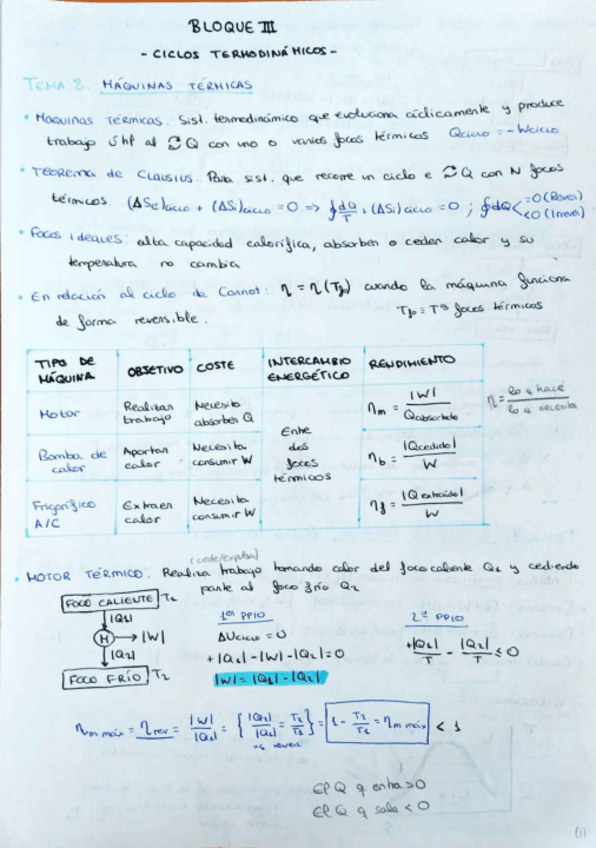 BLOQUE III
- CICLOS TERMODINÁMICOS -
TEMA 8. MÁQUINAS TÉRMICAS
• MAQUINAS TÉRMICAS. Sist. termodinámico que evoluciona cíclicamente y produce
trabajo al Q con uno o varios focos térmicos Qciclo = - Wciclo
• TEOREMA DE CLAUSIUS. Para sist. que recorre un ciclo e Q con N focos
térmicos. (ΔSe)ciclo + (ΔSi)ciclo = 0 => ∮dQ/T + (ΔSi)ciclo = 0 ; ∮dQ < =0 (Rever) <0 (Irrev)
• FOCOS IDEALES: alta capacidad calorífica, absorben o ceden calor y su
temperatura no cambia
• En relación al ciclo de Carnot: η = η(Tf) cuando la máquina funciona
de forma reversible. Tfo = Tª focos térmicos
TIPO DE MÁQUINA OBJETIVO COSTE INTERCAMBIO ENERGÉTICO RENDIMIENTO
Motor Realizar trabajo Necesita absorber Q ηm = |W| / Qabsorbido
η = lo q hace / lo q necesita
Bomba de calor Aportar calor Necesita consumir W Entre dos focos térmicos ηb = |Qcedido| / W
Frigorífico A/C Extraer calor Necesita consumir W ηf = |Q extraído| / W
(cede/expulsa)
• MOTOR TÉRMICO. Realiza trabajo tomando calor del foco caliente Q1 y cediendo
parte al foco frío Q2
FOCO CALIENTE T1
|Q1|
M → |W|
|Q2|
FOCO FRÍO T2
1er PPIO
ΔUciclo = 0
+|Q1| - |W| - |Q2| = 0
|W| = |Q1| - |Q2|
2º PPIO
+|Q1|/T - |Q2|/T ≤ 0
ηm máx = ηrev = |W|/|Q1| = { |Q2|/|Q1| = T2/T1 } = 1 - T2/T1 = ηm máx < 1
El Q q entra > 0
El Q q sale < 0
(1)